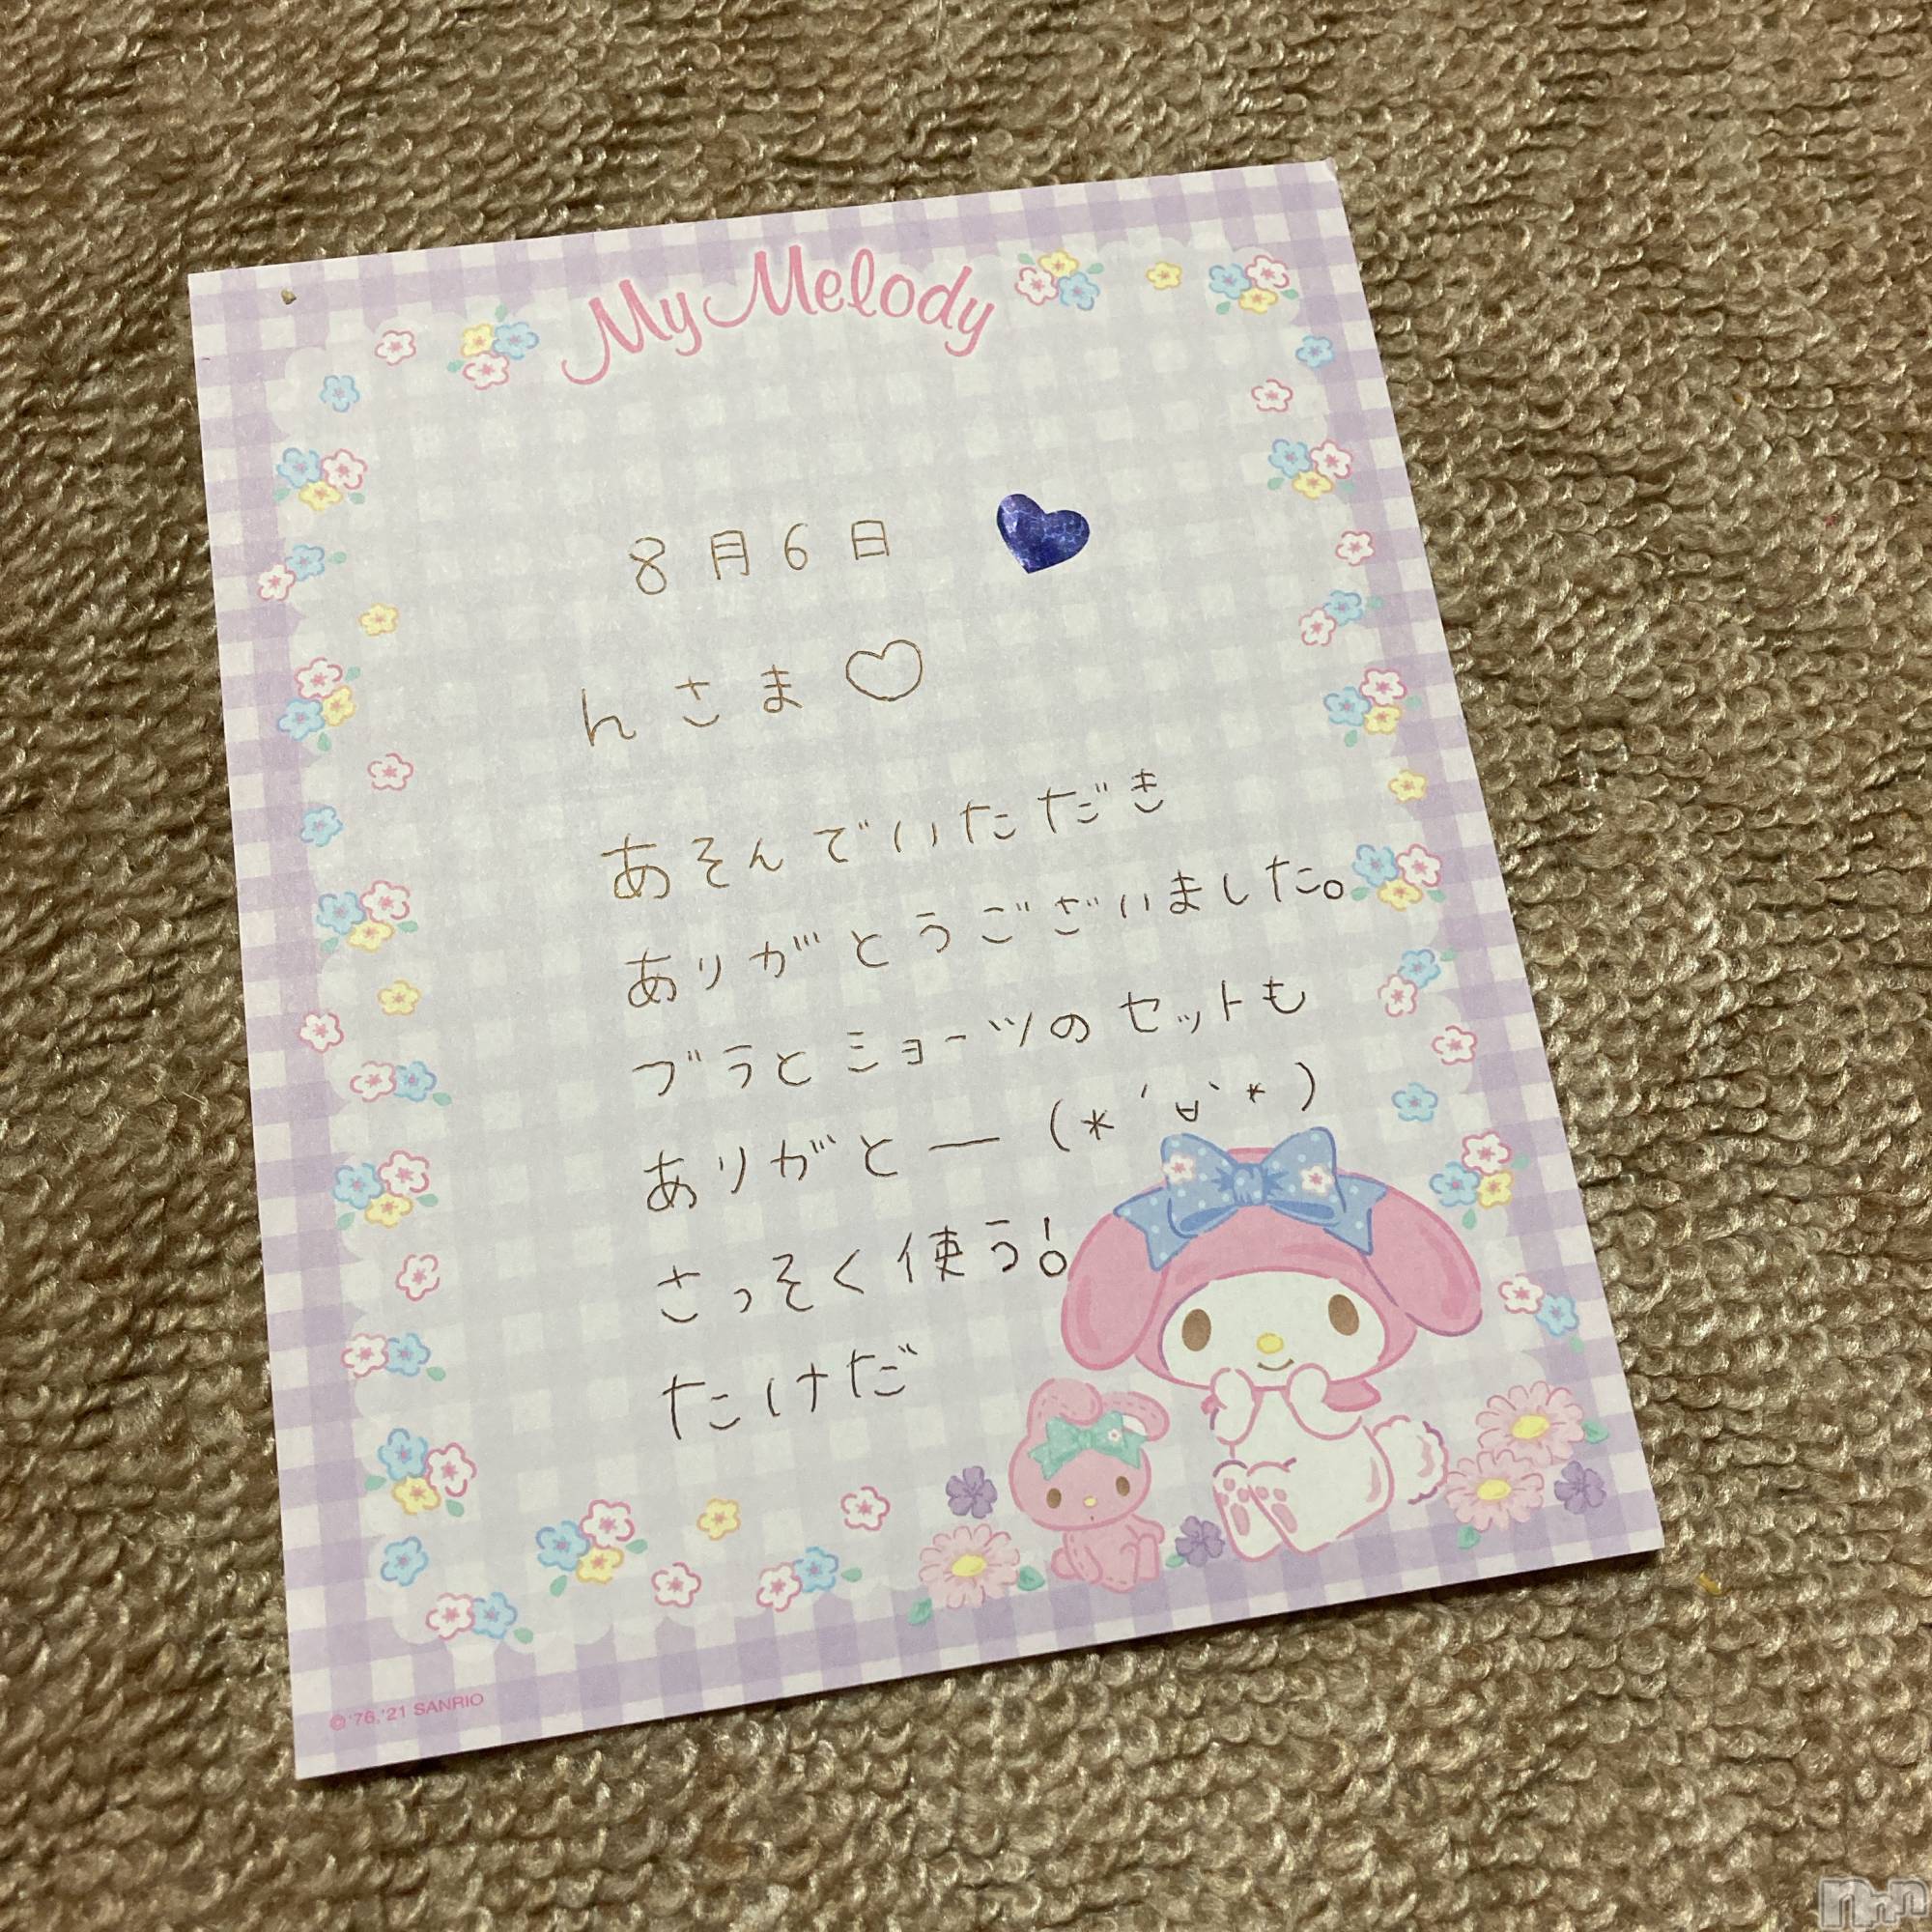 My Melody
8月6日
んさま♡
あそんでいただき
ありがとうございました。
ブラとショーツのセットも
ありがとー(*´∀`*)
さっそく使う!
たけだ
©'76,'21 SANRIO